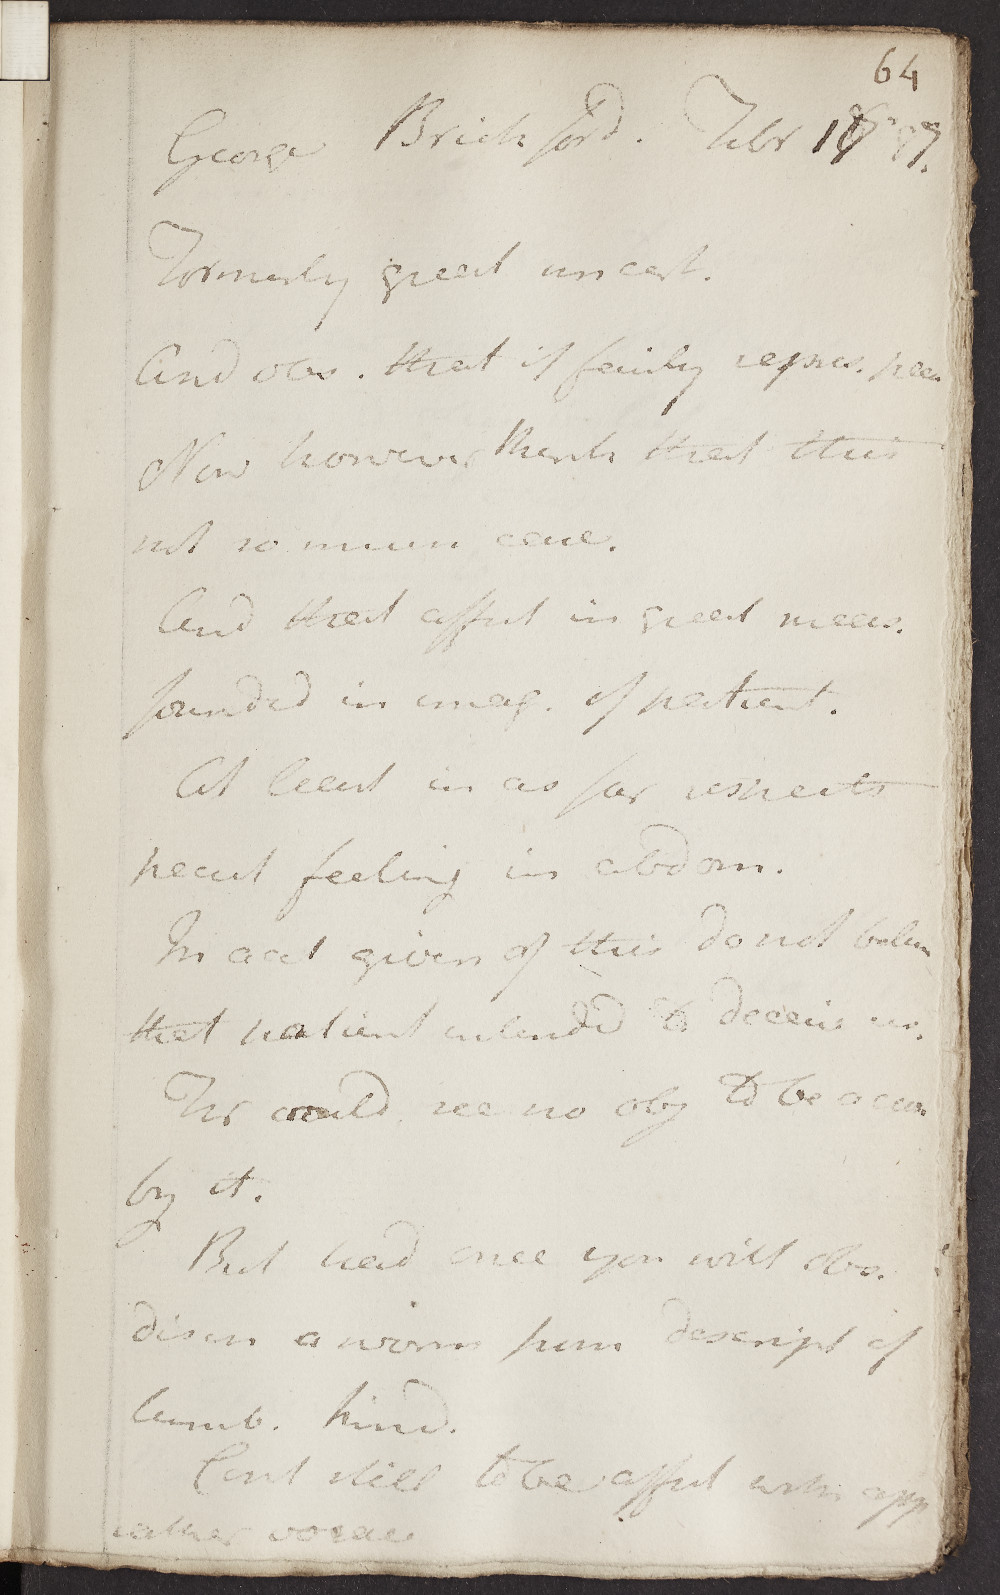 64
George Brickford. Febr 97.
Formerly great uncert.
And obs. that if fairly repres.
Now however think that this
not so much case.
And that affect in great meas.
founded in imag. of patient.
At least in as far respects
pecul feeling in abdom.
In acct given of this do not believ
that patient intended to deceive us.
For could see no obj to be accom
by it.
But had once you will obs.
disch a worm from descript of
lumb. kind.
Cont still to be affect with app
rather vorac